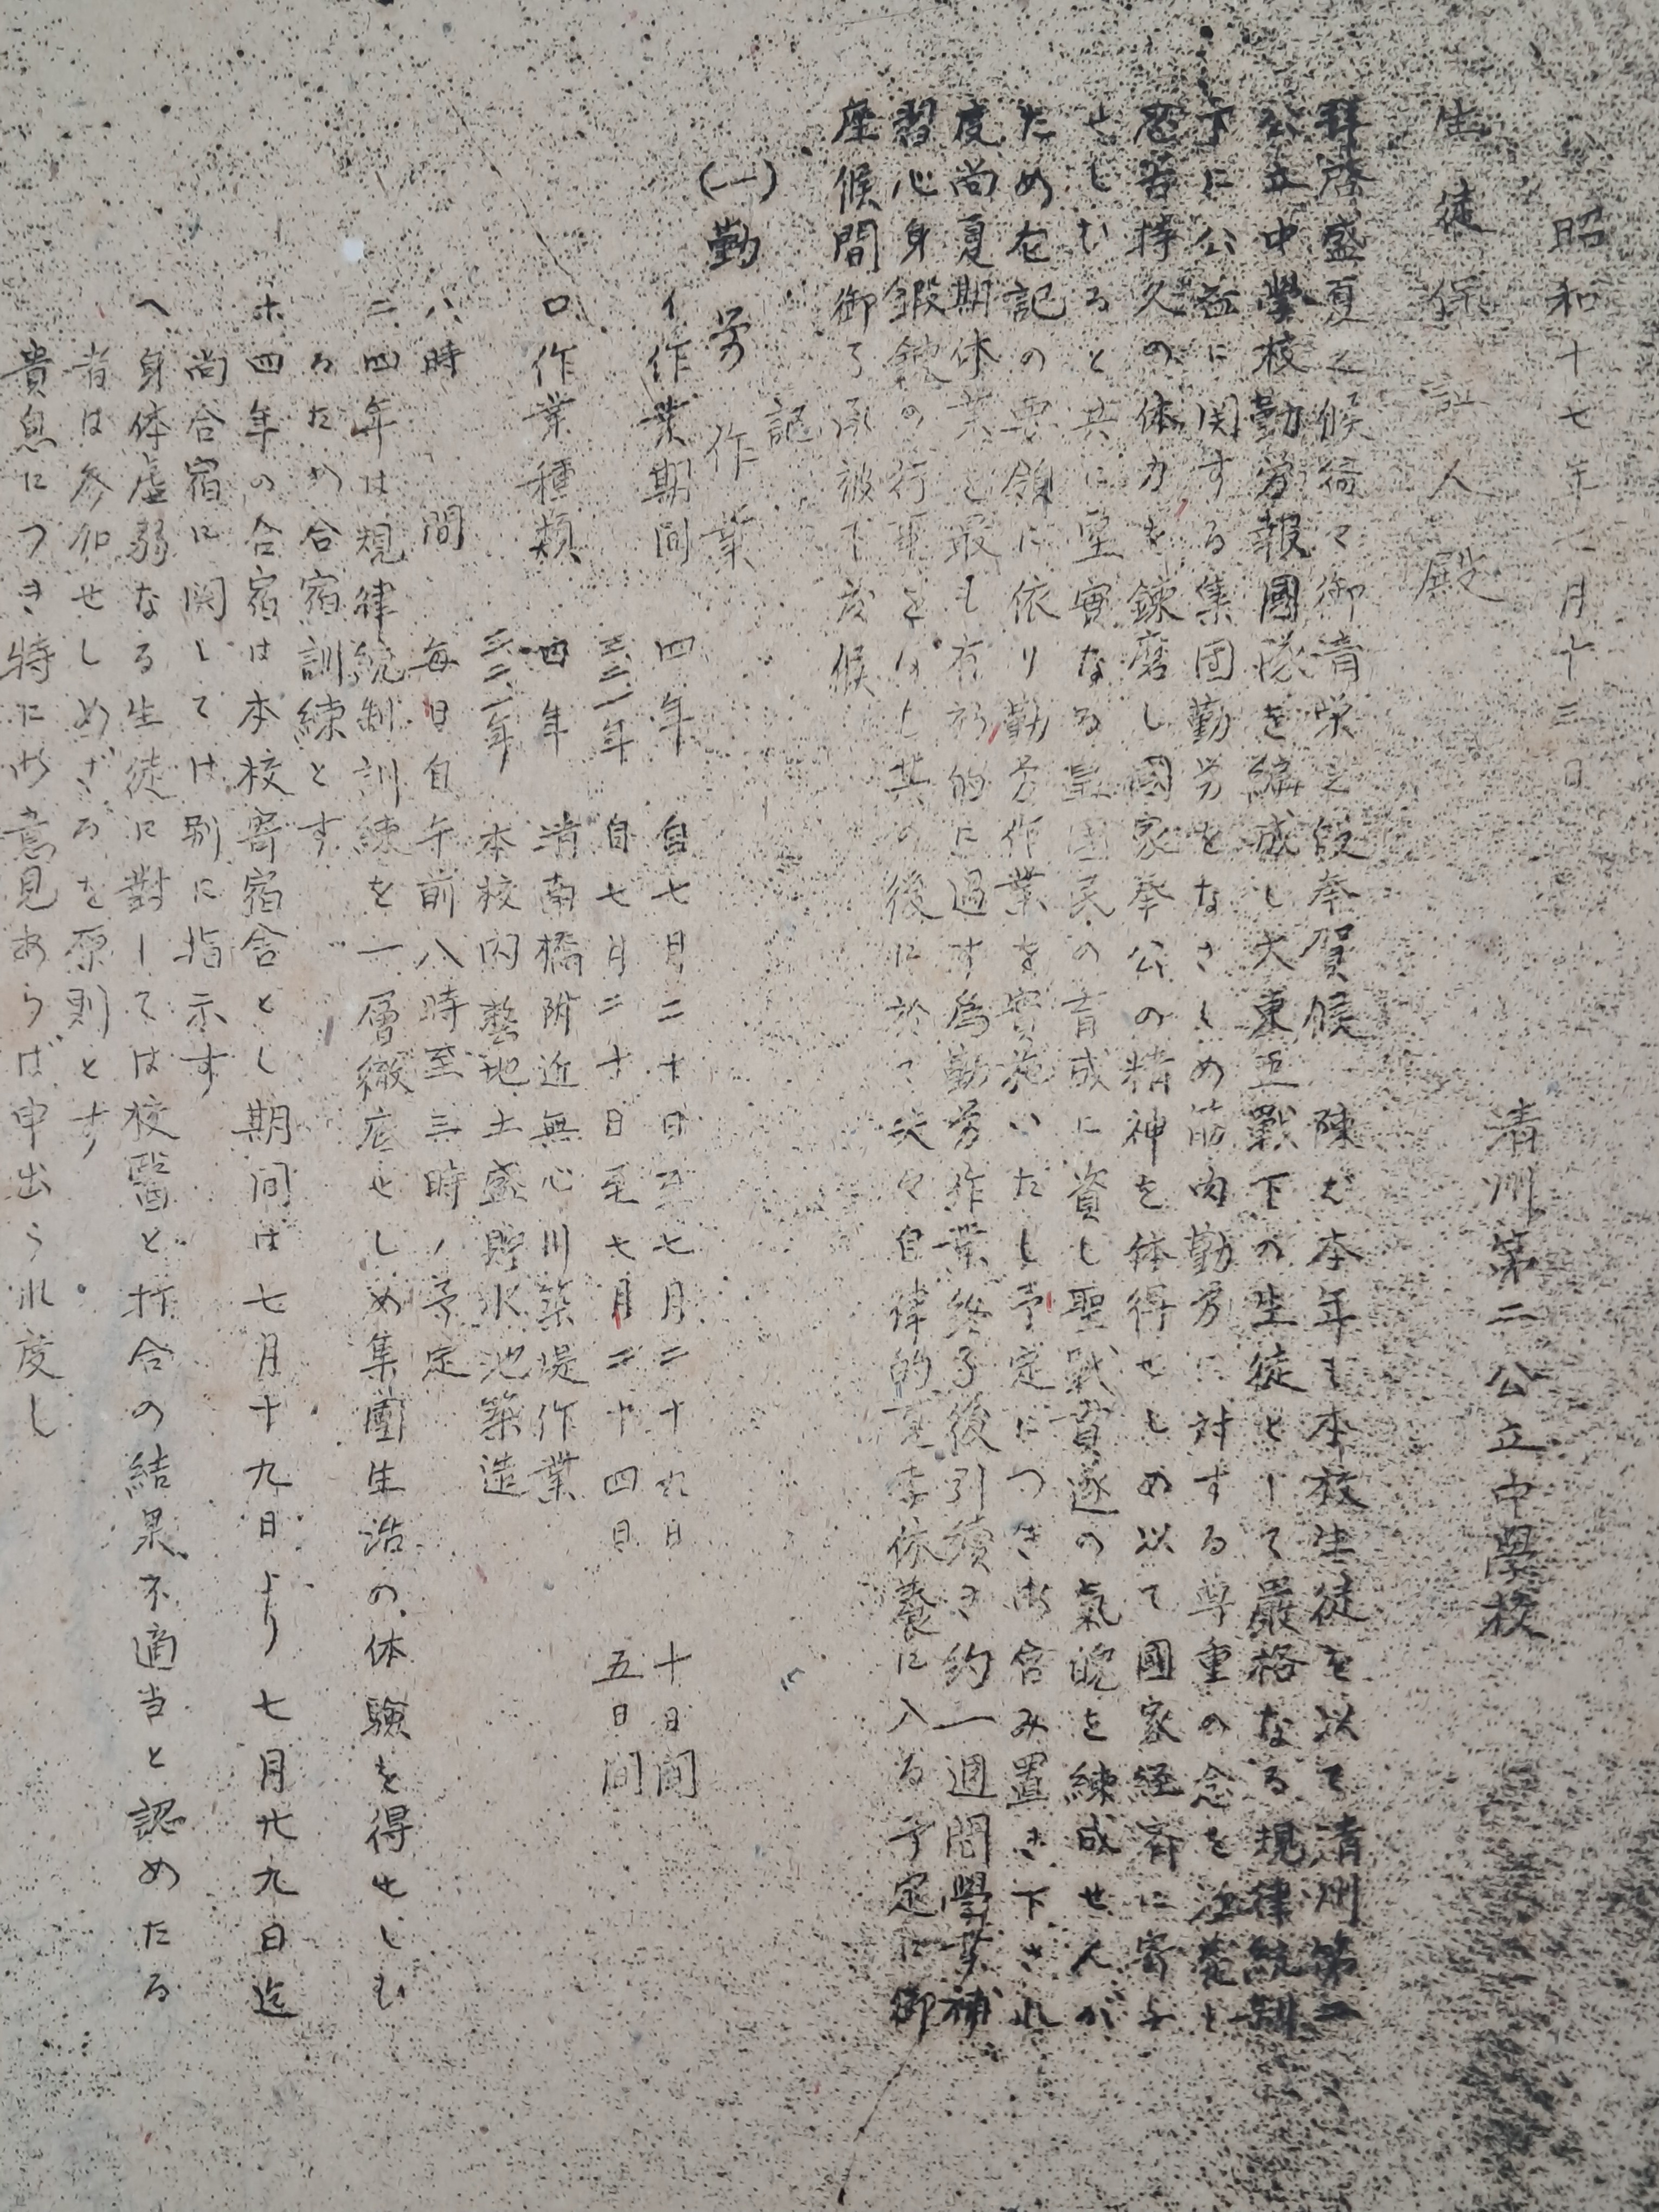 昭和十七年七月十三日
清州第二公立中學校
生徒保証人殿
拝啓盛夏之候倍々御清栄之段奉賀候 陳ば本年も本校生徒を以て清州第二
公立中學校勤労報國隊を編成し大東亜戰下の生徒として嚴格なる規律統制
下に公益に関する集団勤労をなさしめ筋肉勤労に対する尊重の念を
忍苦持久の体力を錬磨し國家奉公の精神を体得せしめ以て國家経済に寄与
せしむると共に堅實なる皇國民の育成に資し聖戰貫遂の氣魄を練成せんが
ため左記の要領に依り勤労作業を實施いたし予定につき御含み置き下され
度尚夏期休業を最も有効的に過す為勤労作業終了後引續き約一週間學業補
習心身鍛錬の行事をなし其の後に於て夫々自律的夏季休養に入る予定に御
座候間御了承被下度候
記
(一)勤労作業
イ作業期間 四年 自七月二十日至七月二十九日 十日間
三、二、一年 自七月二十日至七月二十四日 五日間
ロ作業種類 四年 清南橋附近無心川築堤作業
三、二、一年 本校内整地土盛貯水池築造
ハ時間 毎日自午前八時至三時ノ予定
ニ四年は規律統制訓練を一層徹底せしめ集團生活の体験を得せしむ
るため合宿訓練とす
ホ四年の合宿は本校寄宿舎とし期間は七月十九日より七月廿九日迄
尚合宿に関しては別に指示す
ヘ身体虚弱なる生徒に對しては校醫と打合の結果不適当と認めたる
者は参加せしめざるを原則とす
貴息につき特に御意見あらば申出られ度し